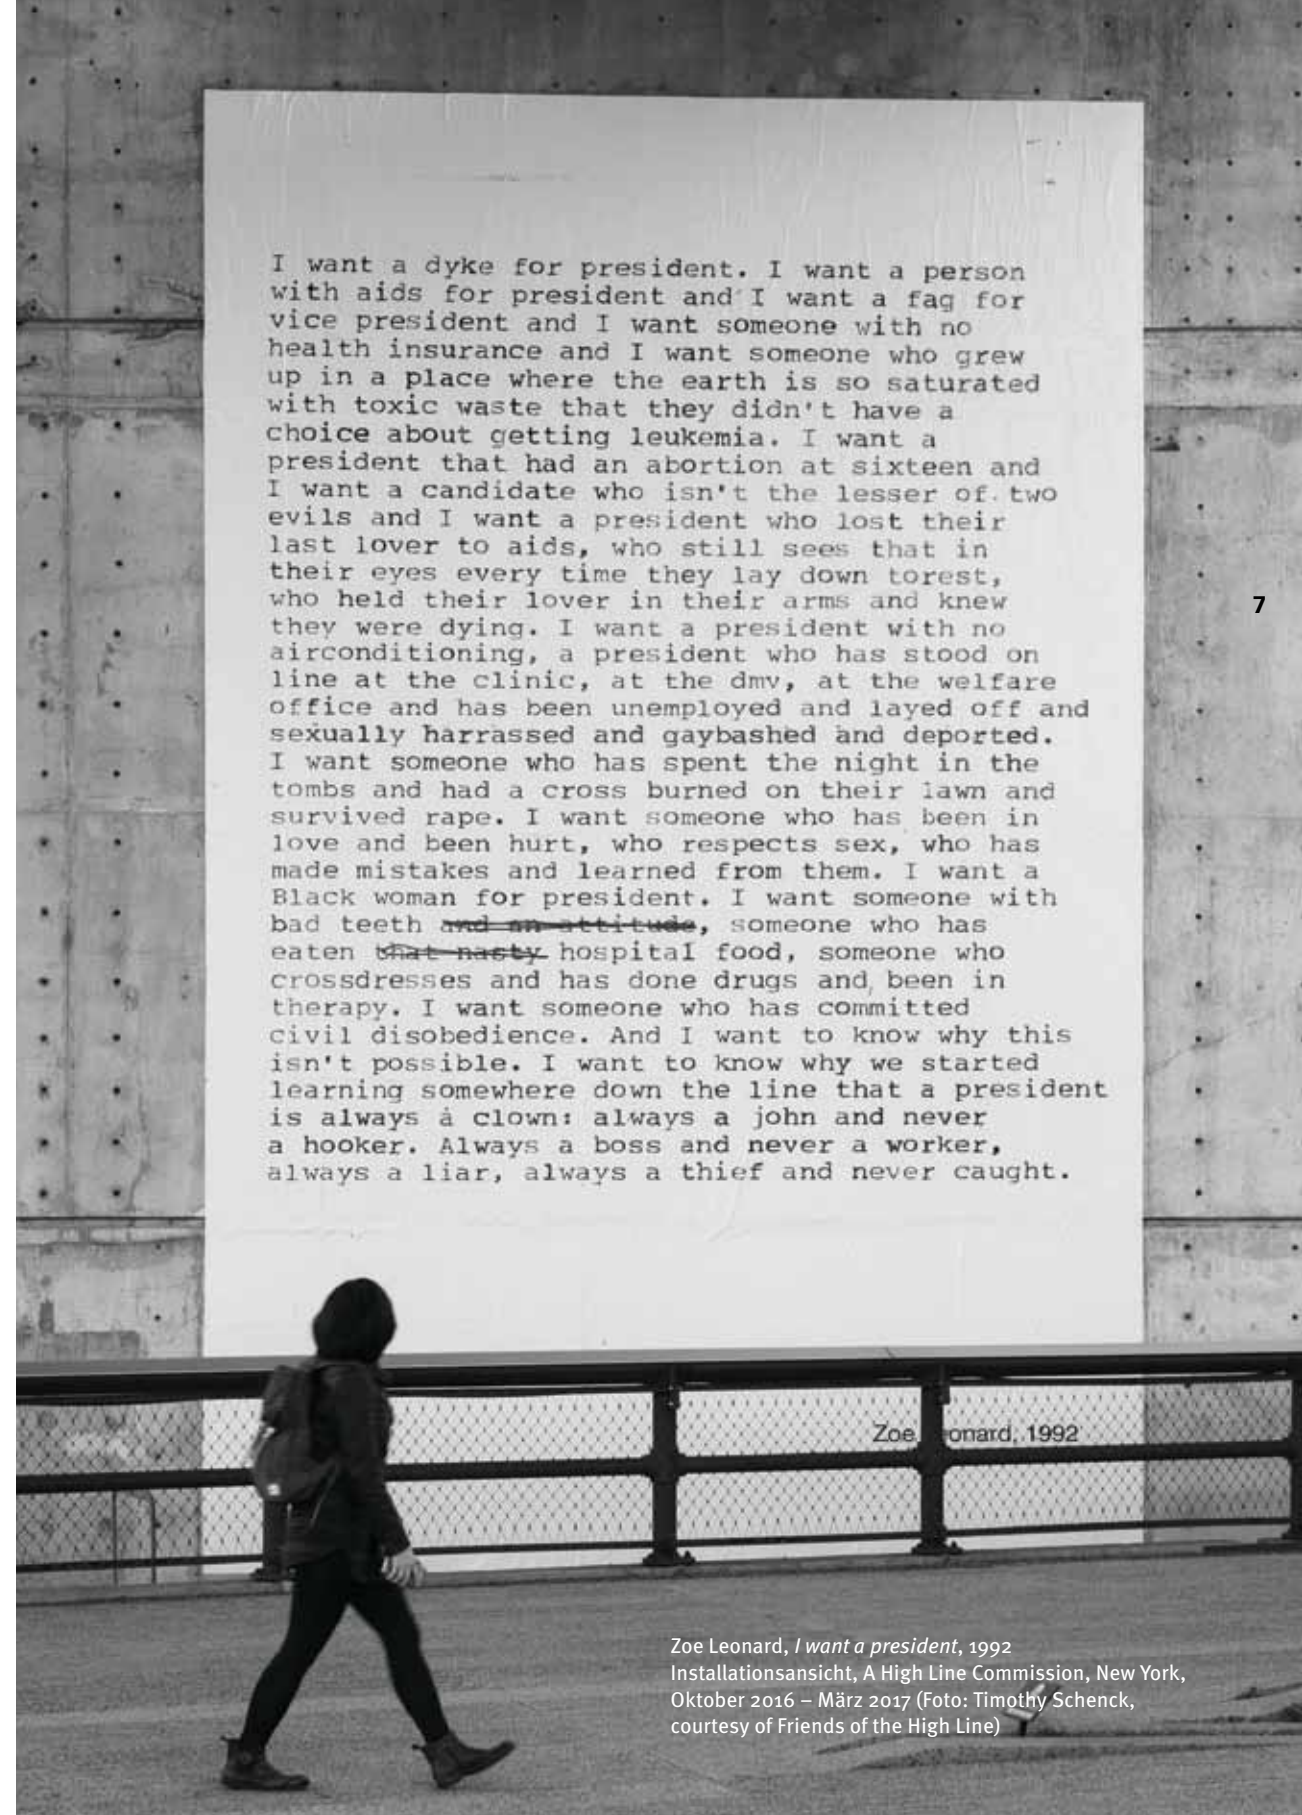 I want a dyke for president. I want a person
with aids for president and I want a fag for
vice president and I want someone with no
health insurance and I want someone who grew
up in a place where the earth is so saturated
with toxic waste that they didn't have a
choice about getting leukemia. I want a
president that had an abortion at sixteen and
I want a candidate who isn't the lesser of two
evils and I want a president who lost their
last lover to aids, who still sees that in
their eyes every time they lay down torest,
who held their lover in their arms and knew
they were dying. I want a president with no
airconditioning, a president who has stood on
line at the clinic, at the dmv, at the welfare
office and has been unemployed and layed off and
sexually harrassed and gaybashed and deported.
I want someone who has spent the night in the
tombs and had a cross burned on their lawn and
survived rape. I want someone who has been in
love and been hurt, who respects sex, who has
made mistakes and learned from them. I want a
Black woman for president. I want someone with
bad teeth and an attitude, someone who has
eaten that nasty hospital food, someone who
crossdresses and has done drugs and been in
therapy. I want someone who has committed
civil disobedience. And I want to know why this
isn't possible. I want to know why we started
learning somewhere down the line that a president
is always a clown: always a john and never
a hooker. Always a boss and never a worker,
always a liar, always a thief and never caught.
7
Zoe onard, 1992
Zoe Leonard, I want a president, 1992
Installationsansicht, A High Line Commission, New York,
Oktober 2016 – März 2017 (Foto: Timothy Schenck,
courtesy of Friends of the High Line)